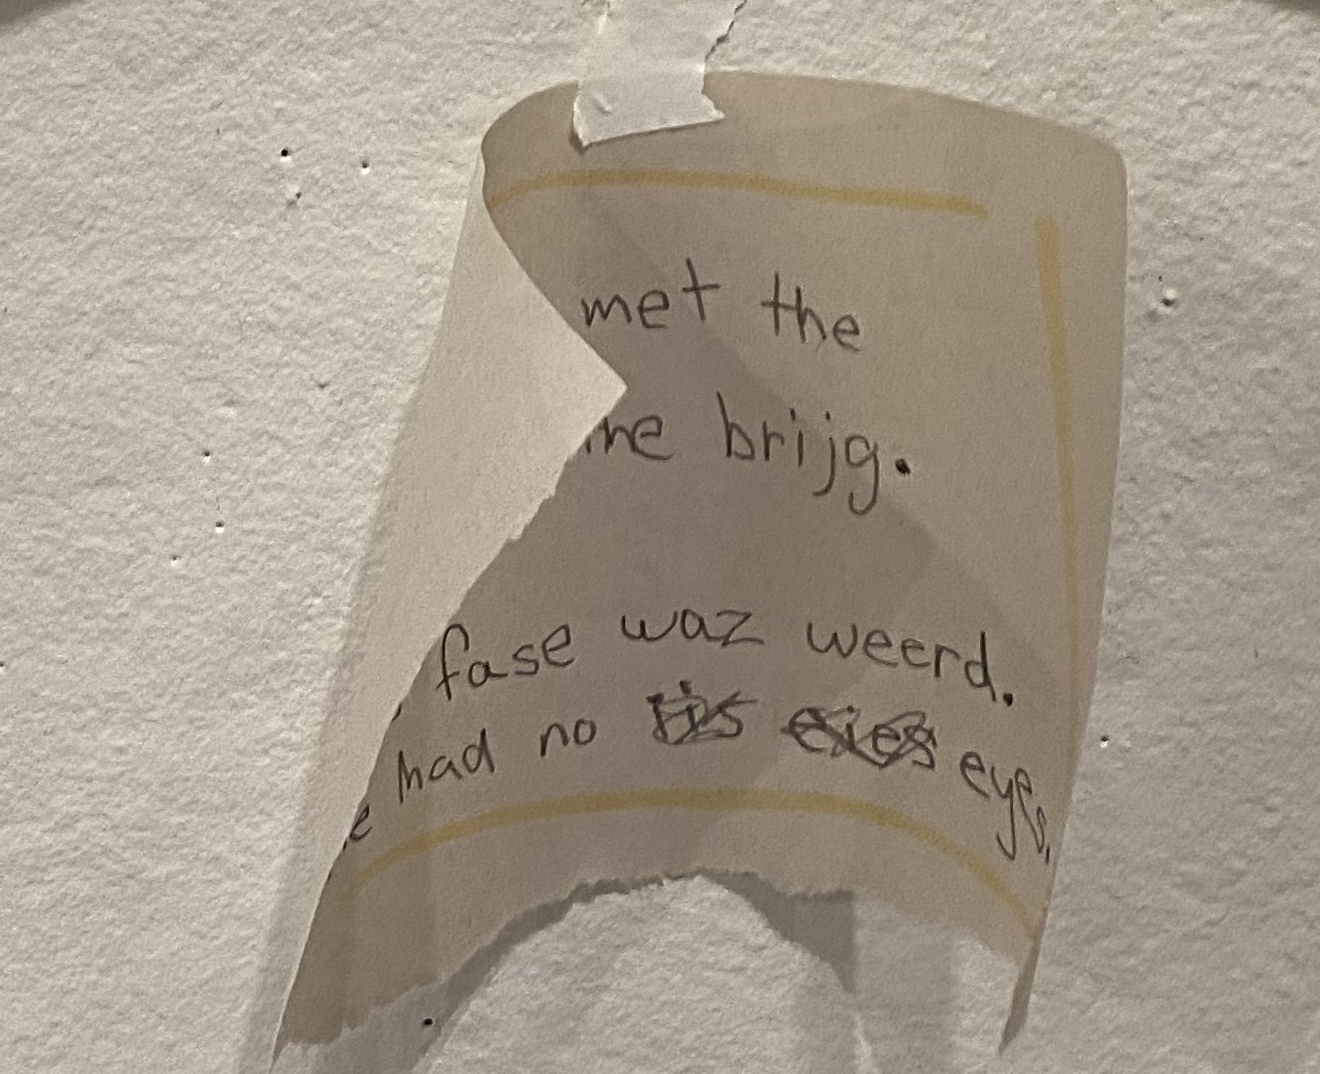 met the
he brijg.
fase waz weerd.
e had no eyes.